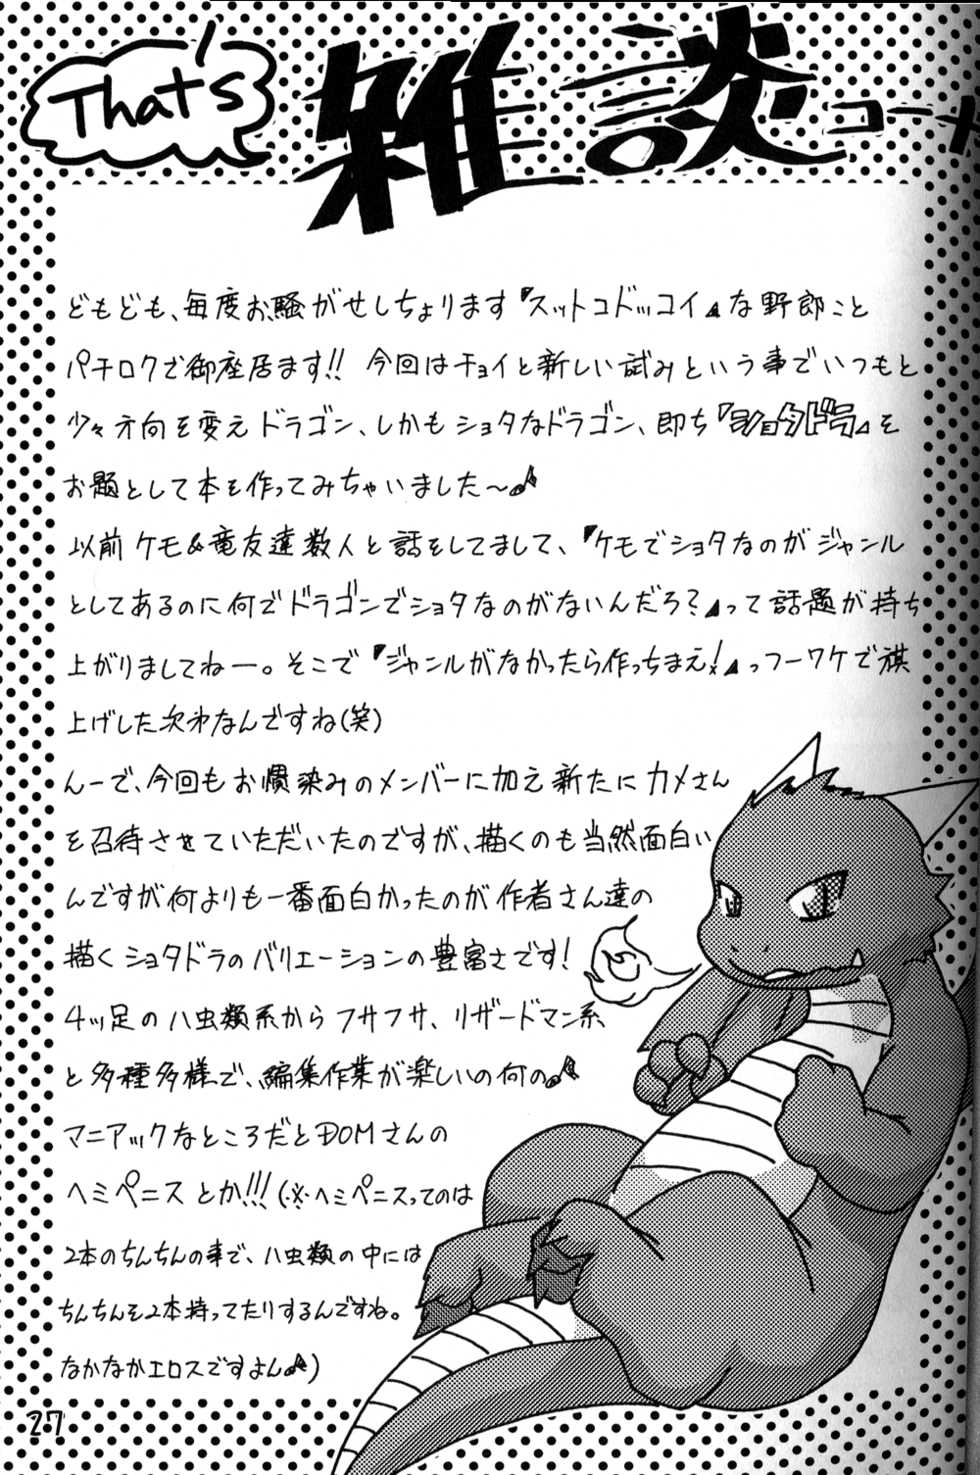 That's 雑談コーナ
どもども、毎度お騒がせしちょります『スットコドッコイ』な野郎こと
パチロクで御座居ます!! 今回はチョイと新しい試みという事でいつもと
少々方向を変えドラゴン、しかもショタなドラゴン、即ち『ショタドラ』を
お題として本を作ってみちゃいました～♪
以前ケモ&竜友達数人と話をしてまして、『ケモでショタなのがジャンル
としてあるのに何でドラゴンでショタなのがないんだろ?』って話題が持ち
上がりましてねー。そこで『ジャンルがなかったら作っちまえ!』っつーワケで旗
上げした次第なんですね(笑)
んーで、今回もお慣染みのメンバーに加え新たにカメさん
を召待させていただいたのですが、描くのも当然面白い
んですが何よりも一番面白かったのが作者さん達の
描くショタドラのバリエーションの豊富さです!
4ッ足のハ虫類系からフサフサ、リザードマン系
と多種多様で、編集作業が楽しいの何の♪
マニアックなところだとDOMさんの
ヘミペニスとか!!!(※ヘミペニスってのは
2本のちんちんの事で、ハ虫類の中には
ちんちんを2本持ってたりするんですね。
なかなかエロスですよん♪)
27